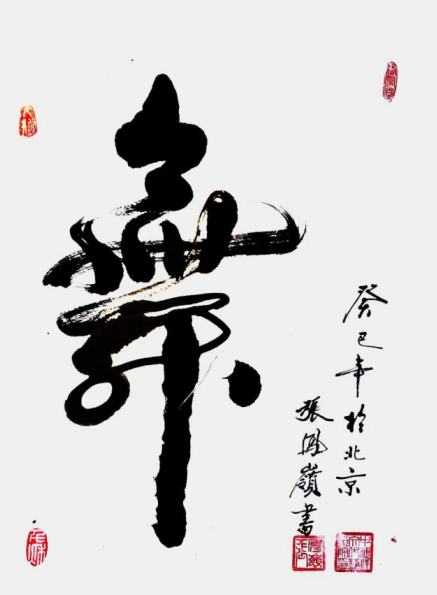 舞
癸巳年於北京
張鳳嶺書